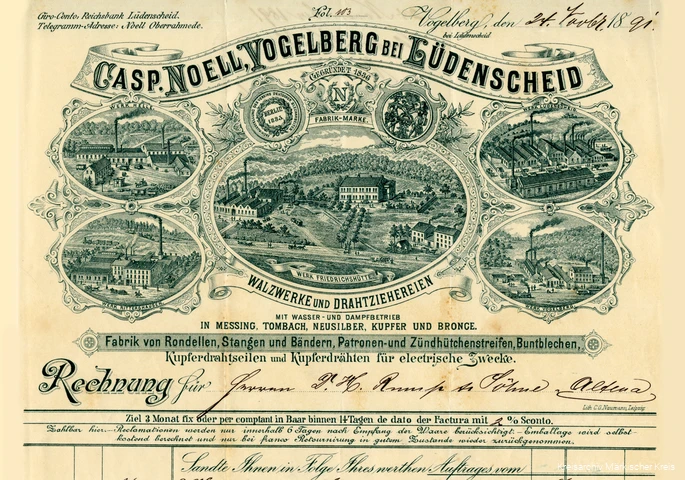 Giro-Conto: Reichsbank Lüdenscheid.
Telegramm-Adresse: Noell Oberrahmede.
Fol. 103
Vogelberg, den 24. 18 91.
bei Lüdenscheid
CASP. NOELL, VOGELBERG BEI LÜDENSCHEID
GEGRÜNDET 1836
N
FABRIK-MARKE.
WERK FRIEDRICHSHÜTTE
WERK VOGELBERG
WALZWERKE UND DRAHTZIEHEREIEN
MIT WASSER- UND DAMPFBETRIEB
IN MESSING, TOMBACH, NEUSILBER, KUPFER UND BRONCE.
Fabrik von Rondellen, Stangen und Bändern, Patronen- und Zündhütchenstreifen, Buntblechen,
Kupferdrahtseilen und Kupferdrähten für electrische Zwecke.
Rechnung für Herren Söhne Altena
Lith. C.G. Naumann, Leipzig
Ziel 3 Monat fix oder per comptant in Baar binnen 14 Tagen de dato der Factura mit 2 % Sconto.
Zahlbar hier.- Reclamationen werden nur innerhalb 6 Tagen nach Empfang der Waare berücksichtigt. Emballage wird selbst-
kostend berechnet und nur bei franco Retournirung in gutem Zustande wieder zurückgenommen.
Sandte Ihnen in Folge Ihres werthen Auftrages vom
Kreisarchiv Märkischer Kreis